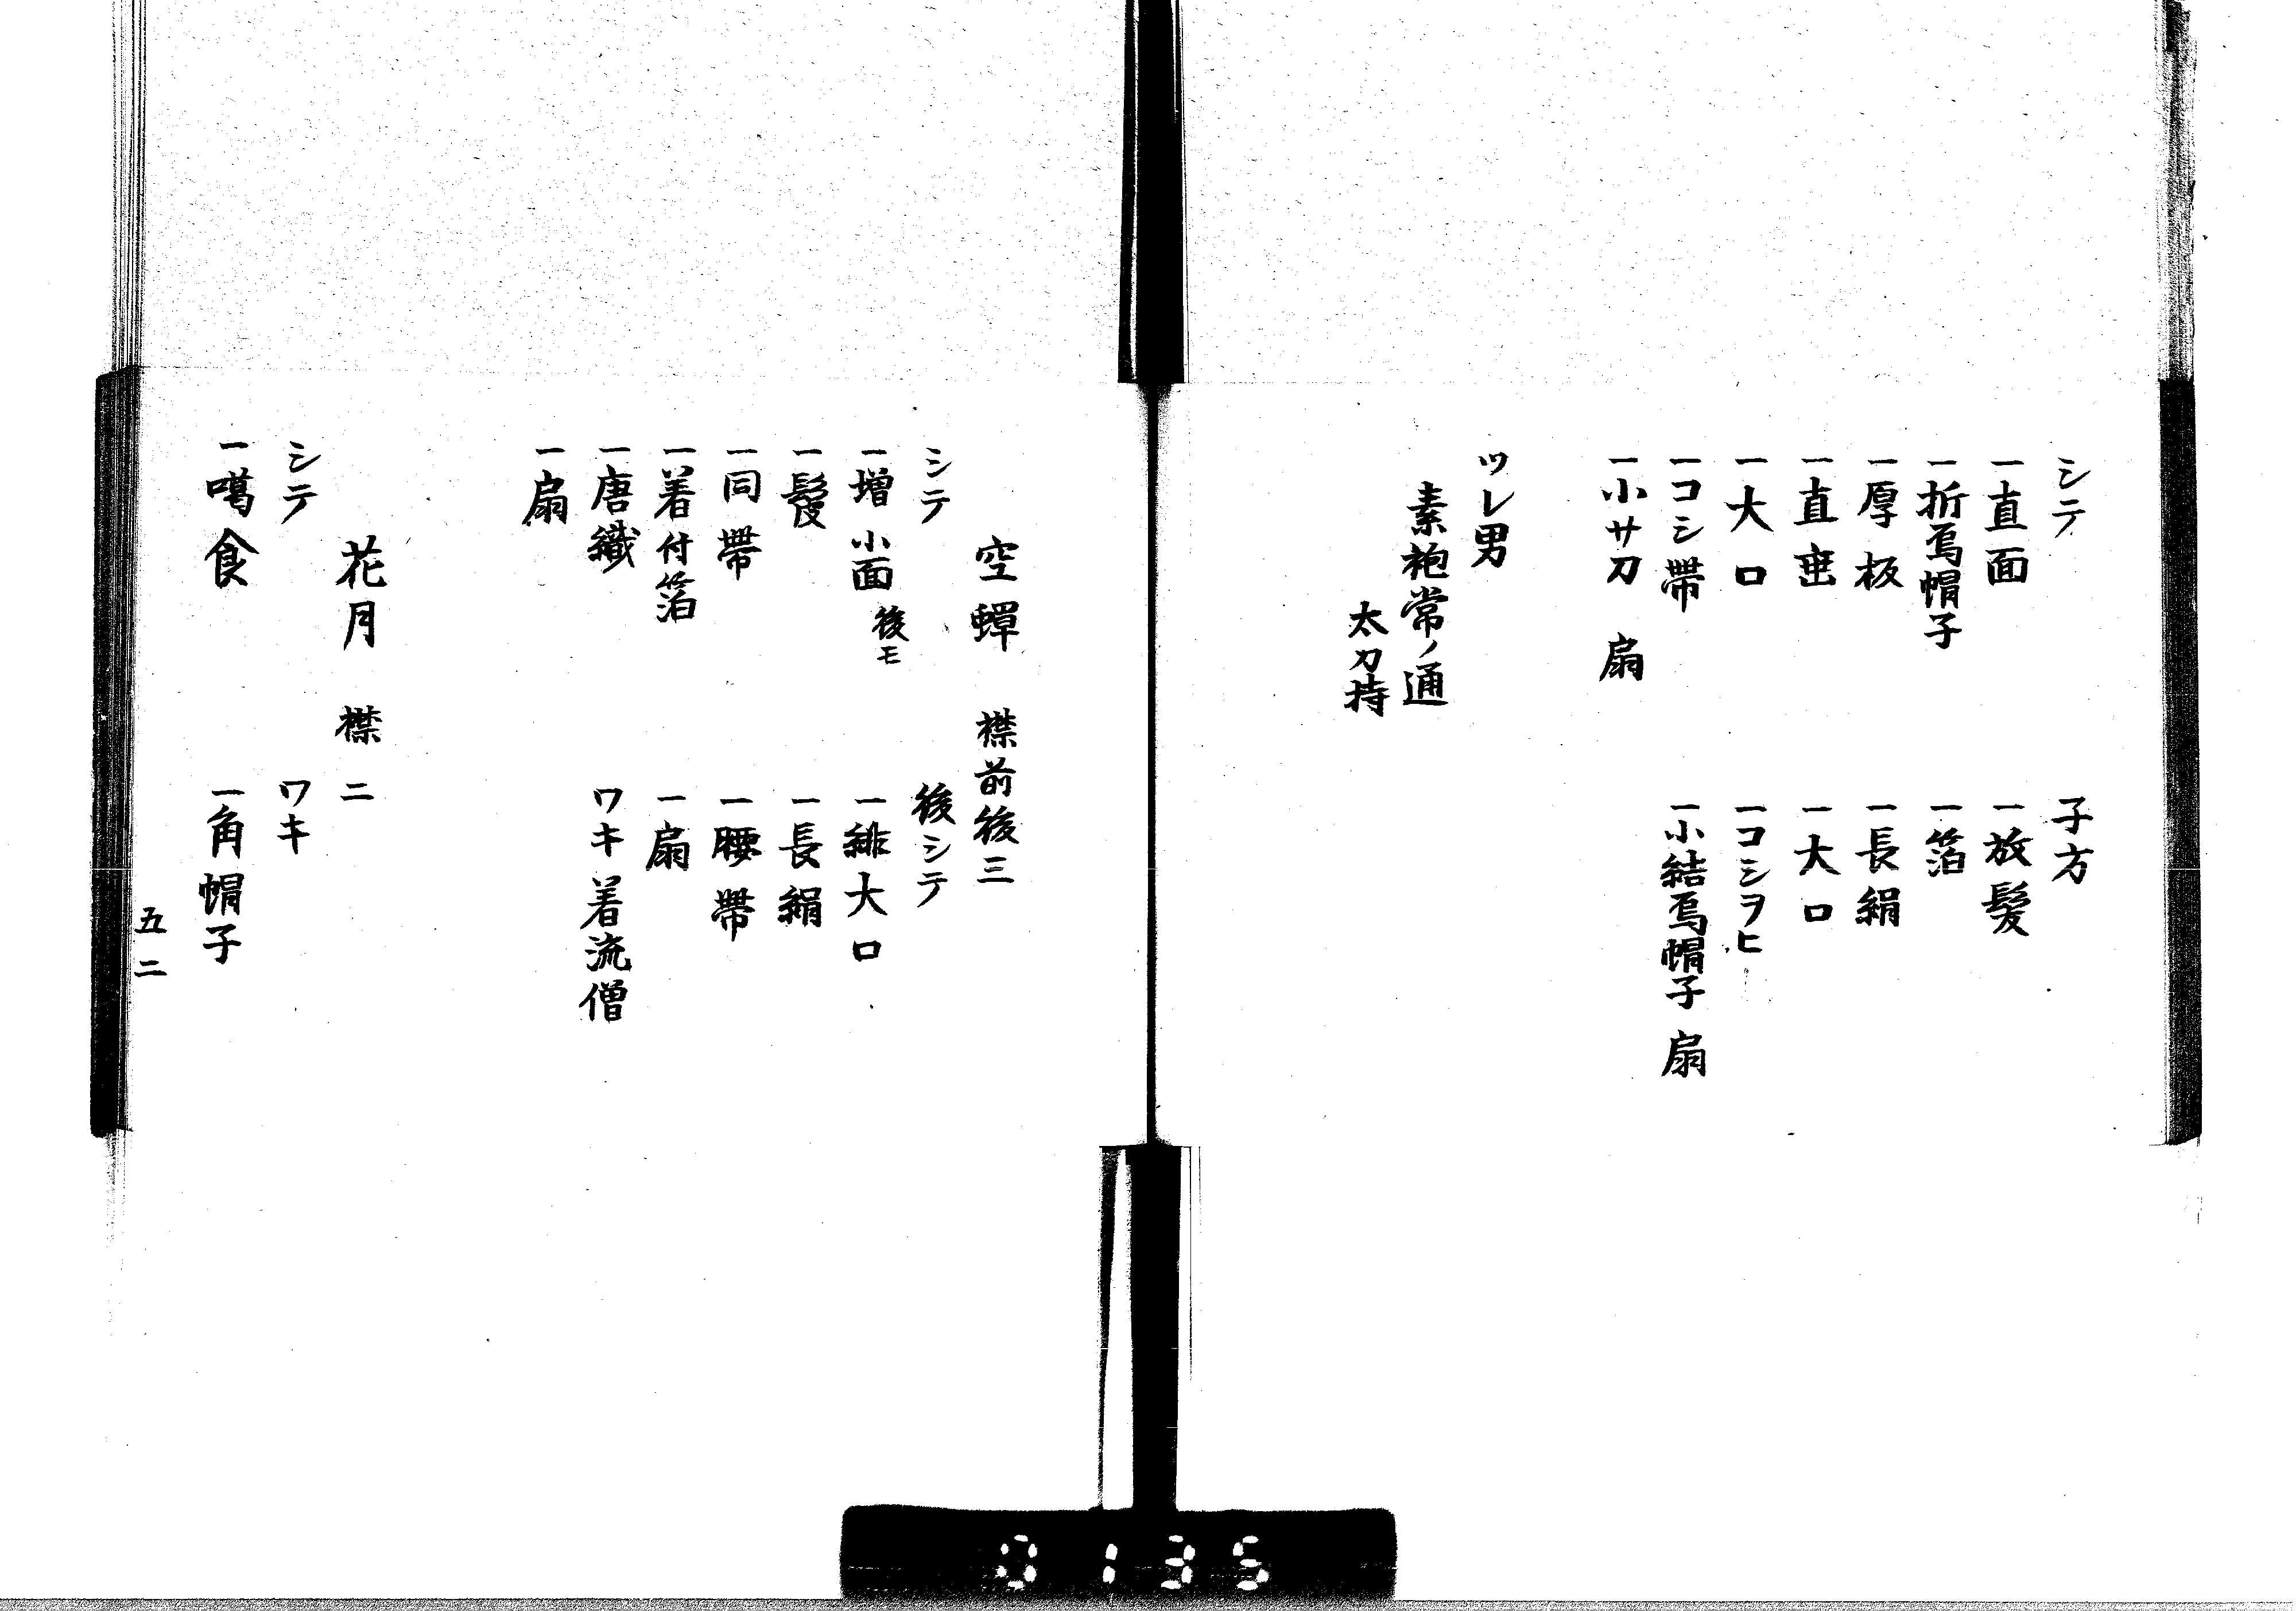 シテ
一直面
一折烏帽子
一厚板
一直垂
一大口
一コシ帶
一小サ刀　扇
子方
一放髪
一箔
一長絹
一大口
一コシヲヒ
一小結烏帽子　扇
ツレ男
素袍常ノ通
太刀持
空蟬　襟前後三
シテ
一増　小面　後モ
一鬘
一同帶
一着付箔
一唐織
一扇
後シテ
一緋大口
一長絹
一腰帶
一扇
ワキ　着流僧
花月　襟二
シテ
一喝食
ワキ
一角帽子
五二
3135